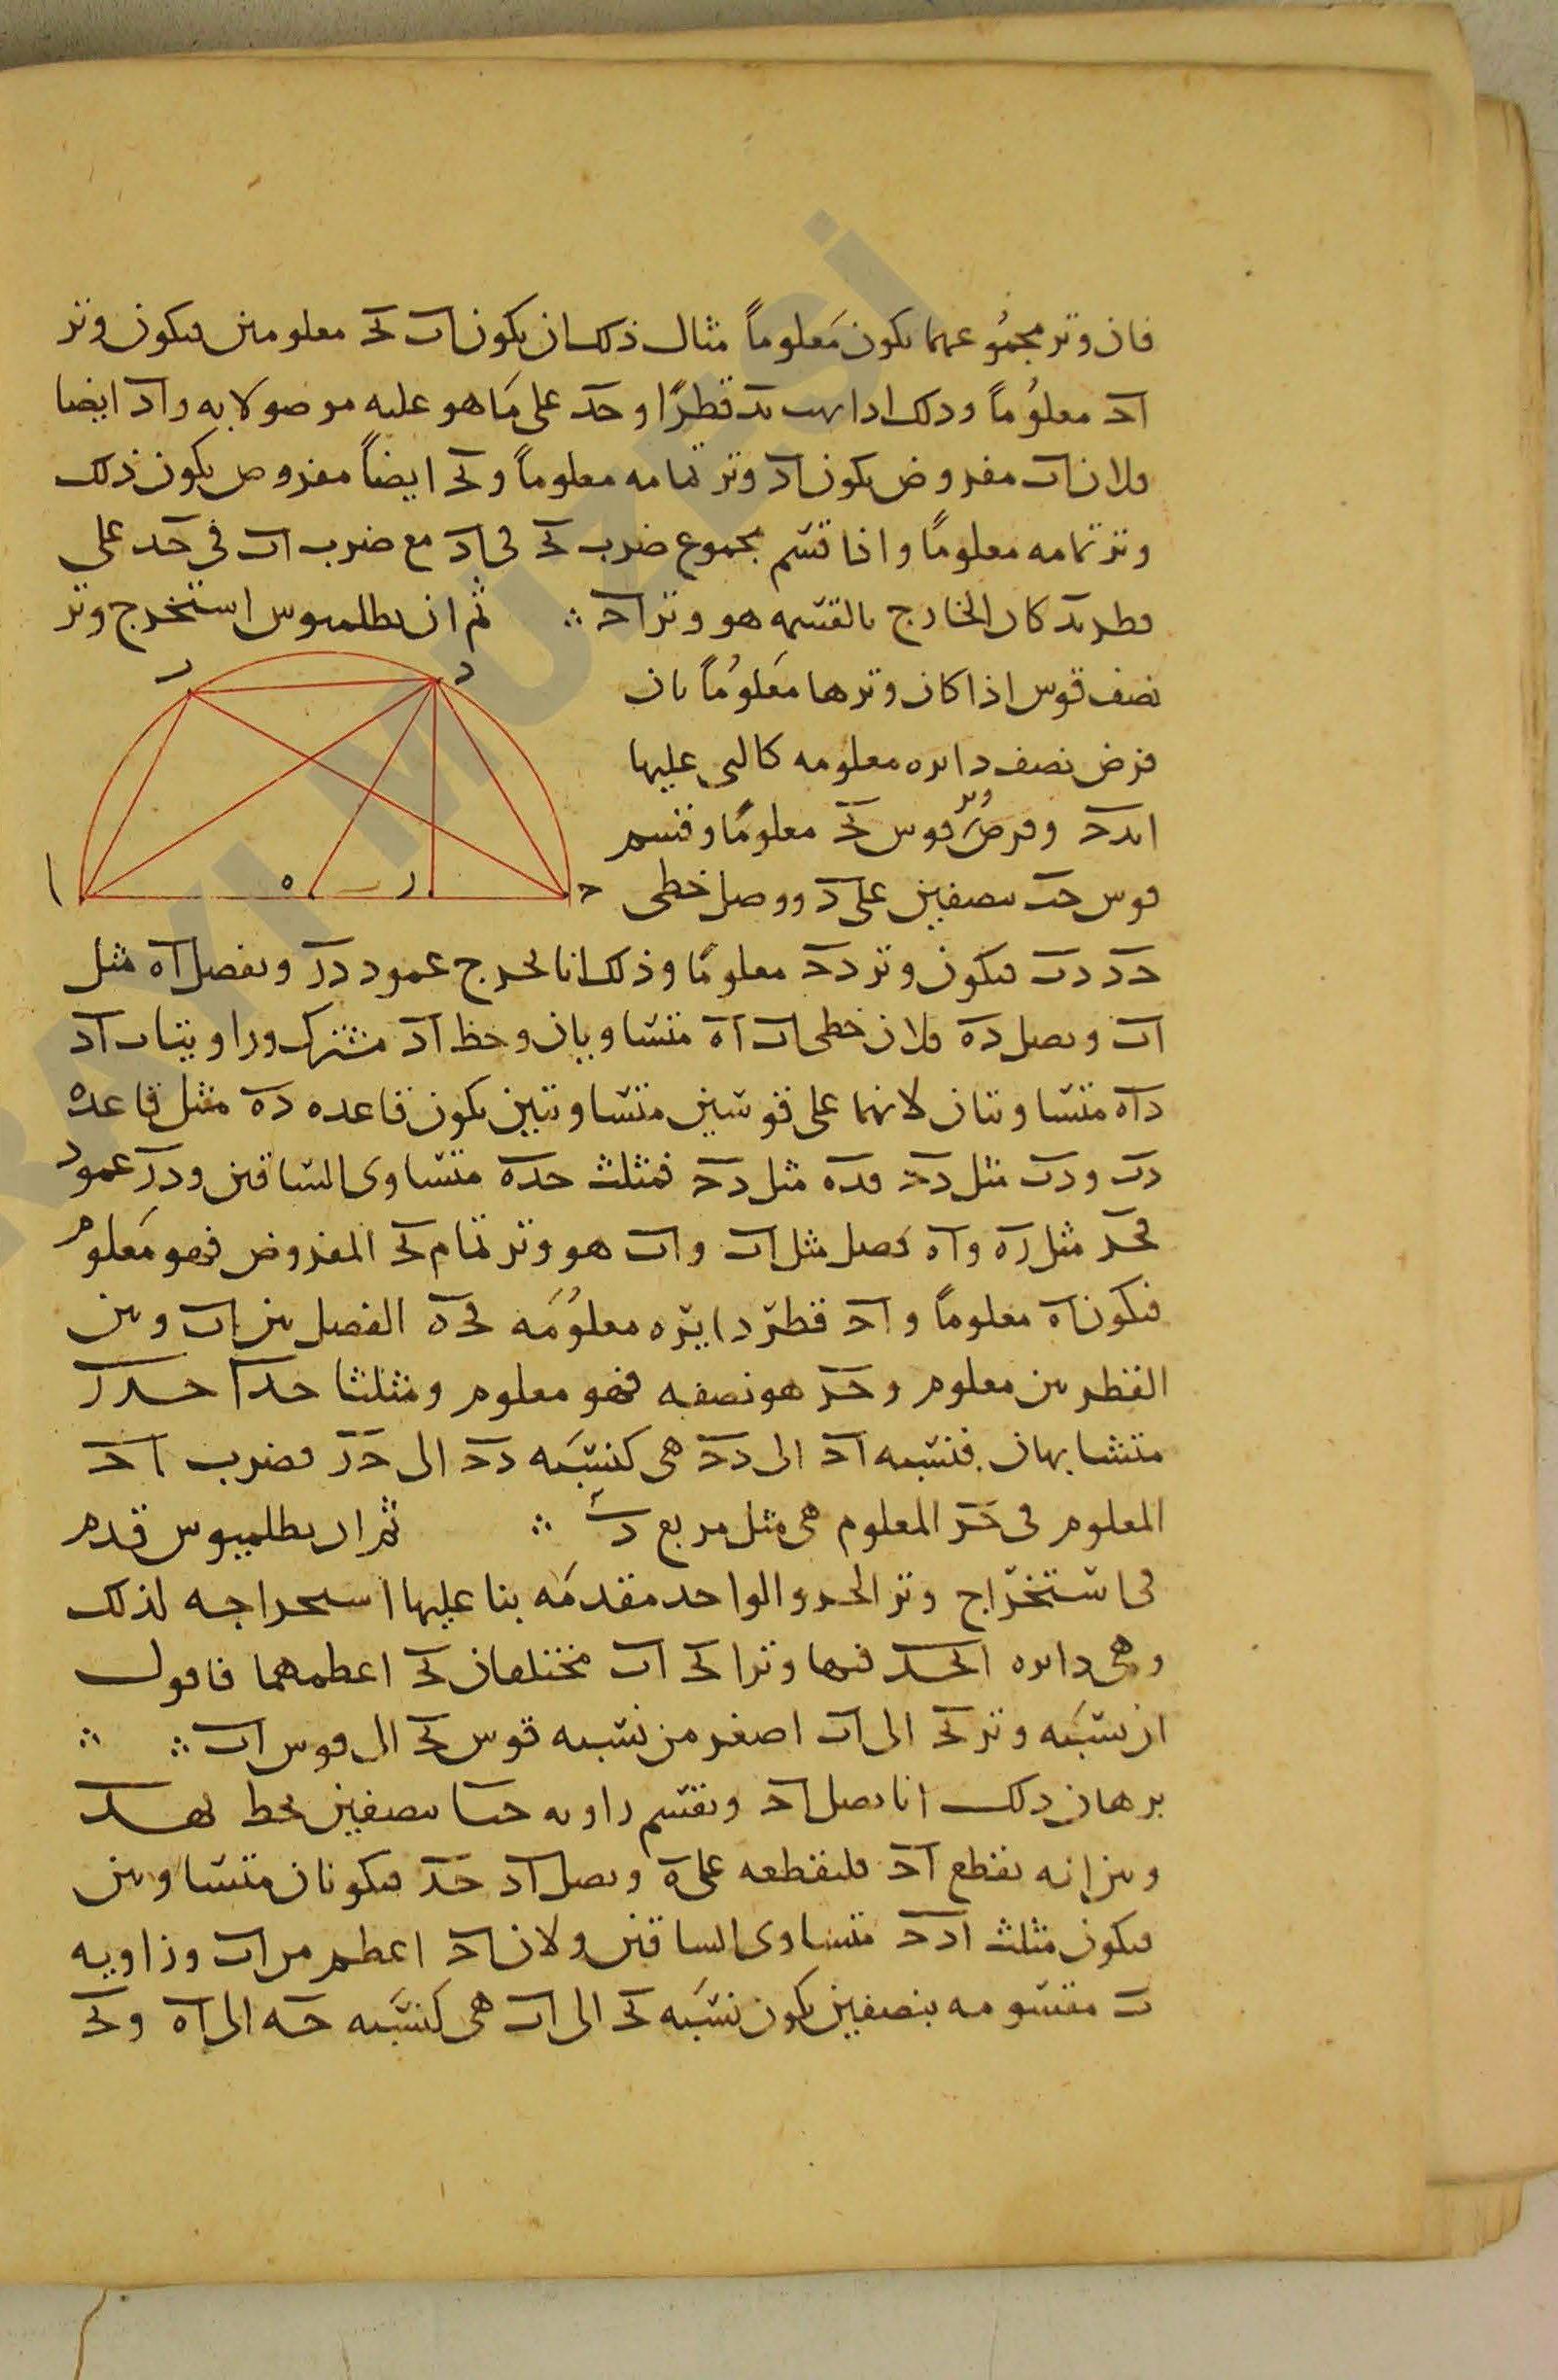 فان وتر مجموعهما يكون معلوماً مثال ذلك ان يكون اب بج معلومين فيكون وتر
اج معلوماً وذلك اذا بد قطراً وجد على ما هو عليه موصولا به واد ايضا
فلان اب مفروض يكون اد وتر تمامه معلوماً وبج ايضاً مفروض يكون ذلك
وتر تمامه معلوماً واذا قسم مجموع ضرب بج في اد مع ضرب اب في جد على
قطر بد كان الخارج بالقسمه هو وتر اج ∴ ثم ان بطلميوس استخرج وتر
نصف قوس اذا كان وترها معلوماً بان
فرض نصف دايره معلومه كالتي عليها
ابدج وفرض وتر قوس بج معلوماً وقسم
قوس جب بنصفين على د ووصل خطي
جد دب فيكون وتر دج معلوماً وذلك انا نخرج عمود در ونفصل اه مثل
اب ونصل ده فلان خطي اب اه متساويان وخط اد مشترك وزاويتا ب اد
داه متساويتان لانهما على قوسين متساويتين يكون قاعده ده مثل قاعده
دب ودب مثل دج فده مثل دج فمثلث جده متساوي الساقين ودر عمود
فجر مثل ره واه فصل مثل اب واب هو وتر تمام بج المفروض فهو معلوم
فيكون اه معلوماً واج قطر دايره معلومه فجه الفصل بين اب وبين
القطر بين معلوم وجر هو نصفه فهو معلوم ومثلثا جدا جدر
متشابهان فنسبه اج الى دج هي كنسبه دج الى جر فضرب اج
المعلوم في جر المعلوم هي مثل مربع ∴ ثم ان بطلميوس قدم
في استخراج وتر الجزو الواحد مقدمه بنا عليها استخراجه لذلك
وهي دايره ابجد فيها وترا بج اب مختلفان بج اعظمهما فاقول
ان نسبه وتر بج الى اب اصغر من نسبه قوس بج الى قوس اب ∴ ∴
برهان ذلك انا نصل اج ونقسم زاويه جبا بنصفين بخط بهد
وبين انه يقطع اج فليقطعه على ه ونصل اد جد فيكونان متساويين
فيكون مثلث ادج متساوي الساقين ولان بج اعظم من اب وزاويه
ب مقسومه بنصفين يكون نسبه بج الى اب هي كنسبه جه الى اه وبج
ب
د
ا
ه
ر
ج